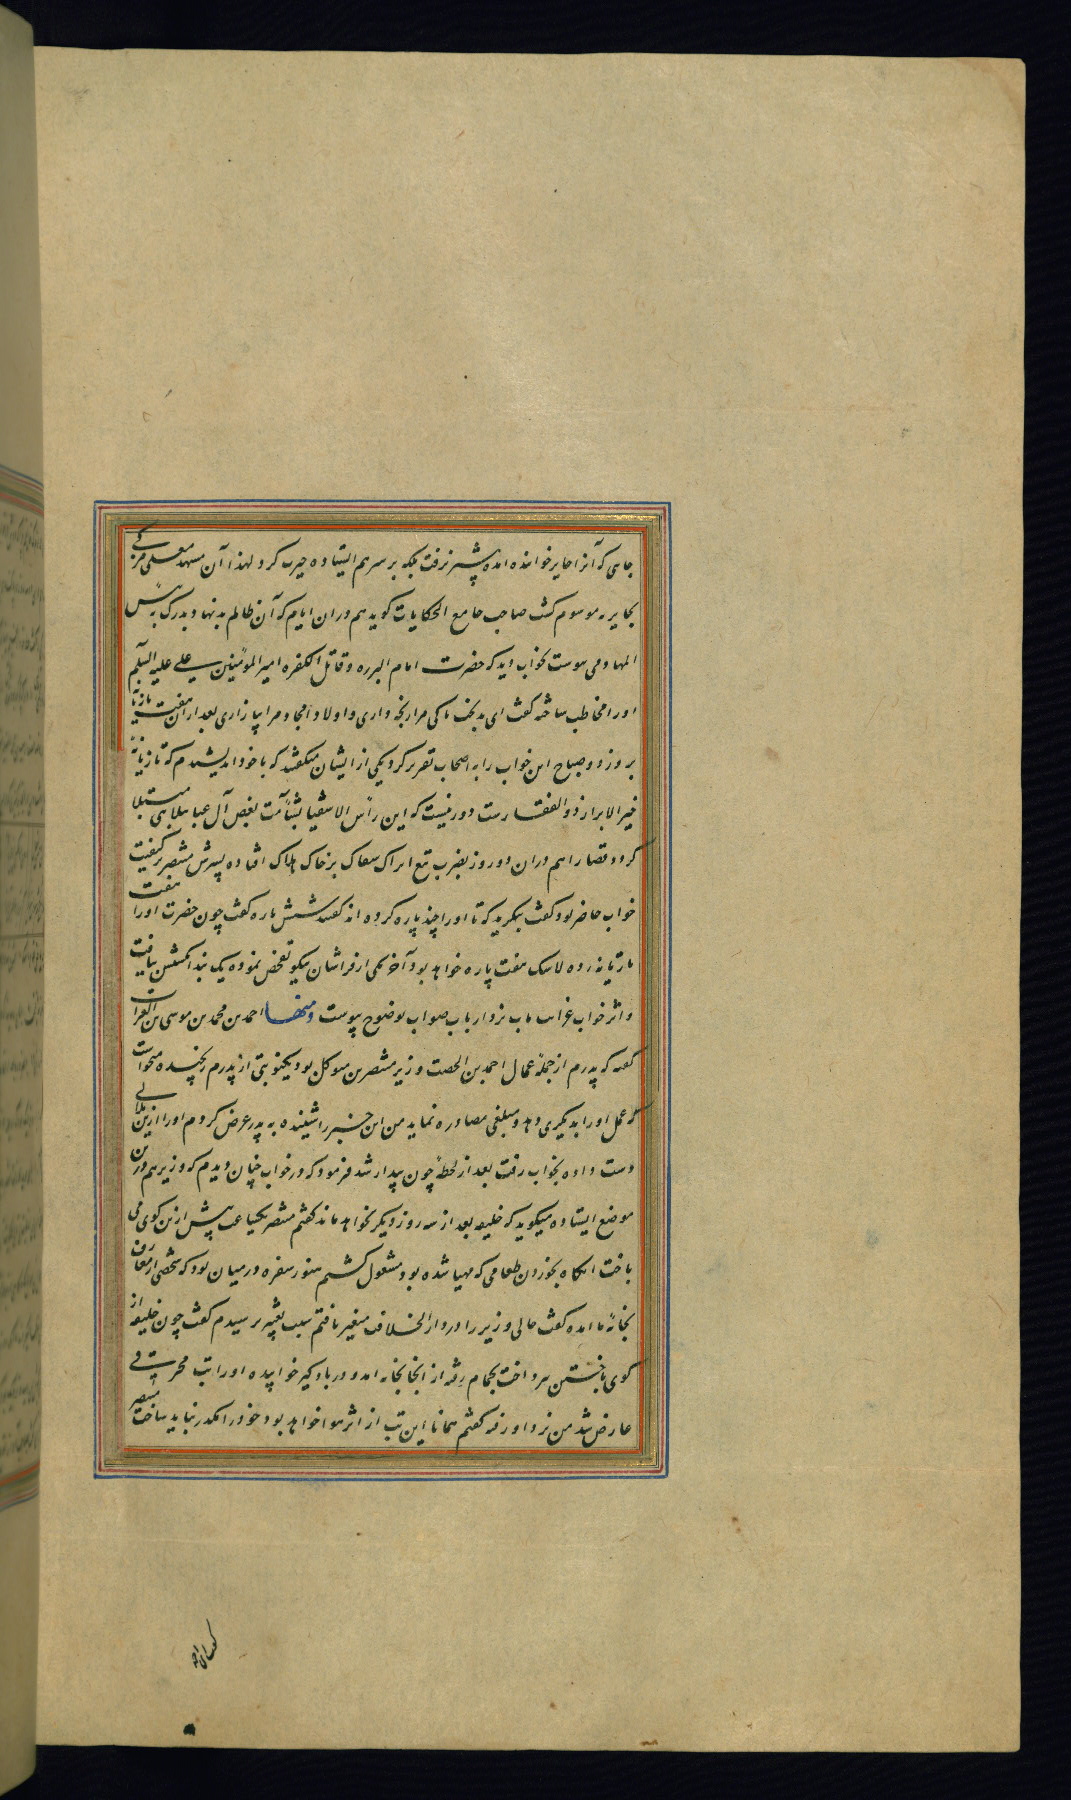 جایی که آنرا حایر خوانند آمده پیشتر نرفت بلکه بر سر هم ایستاده حیرت کرد لهذا آن مشهد معلی مزکی
بحایریه موسوم کشت صاحب جامع الحکایات کوید هم در ان ایام که آن ظالم بدنهاد بدرک
المهاد می پیوست بخواب دید که حضرت امام البرره و قاتل الکفره امیر المؤمنین علی علیه السلم
اورا مخاطب ساخته کفت ای بدبخت تا کی مرا رنجه داری و اولاد و امجاد مرا بیازاری بعد ازان هفت تازیانه
برو زد و صباح این خواب را به اصحاب تقریر کرد یکی از ایشان میکفت که با خود اندیشیدم که تازیانهٔ
خیر الابرار ذو الفقارست دور نیست که این رأس الاشقیا بشآمت بغض آل عبا ببلایی مبتلا
کردد قضا را هم دران دو روز بضرب تیغ اتراک سفاک بر خاک هلاک افتاده پسرش منتصر بر کیفیت
خواب حاضر بود کفت بنکرید که تا اورا چند پاره کرده اند کفتند شش پاره کفت چون حضرت اورا هفت
تازیانه زده لاشک هفت پاره خواهد بود آخر یکی از فراشان نیکو تفحص نموده یک بند انکشتش بیافت
و اثر خواب غرایب مآب نزد ارباب صواب بوضوح پیوست ومنها احمد بن محمد بن موسی بن الفرات
کفته که پدرم از جملهٔ عمال احمد بن الخصیب وزیر منتصر بن متوکل بود یکنوبتی از پدرم رنجیده میخواست
که عمل اورا بدیکری دهد و مبلغی مصادره نماید من این خبر را شنیده به پدر عرض کردم اورا ازین ملالی
دست داده بخواب رفت بعد از لحظهٔ چون بیدار شد فرمود که در خواب چنان دیدم که وزیر هم درین
موضع ایستاده میکوید که خلیفه بعد از سه روز دیکر نخواهد ماند کفتم منتصر یکساعت پیش ازین کوی می
باخت انکاه بخوردن طعامی که مهیا شده بود مشغول کشتیم هنوز سفره در میان بود که شخصی از معارف
بخانهٔ ما امده کفت حالی وزیر را در دار الخلافت متغیر یافتم سبب تغیر پرسیدم کفت چون خلیفه از
کوی باختن پرداخت بحمام رفته از انجا بخانه امد و در بادکیر خوابیده اورا تب محرق
عارض شد من نزد او رفته کفتم همانا این تب از اثر هوا خواهد بود خود را مکدر نباید ساخت منتصر